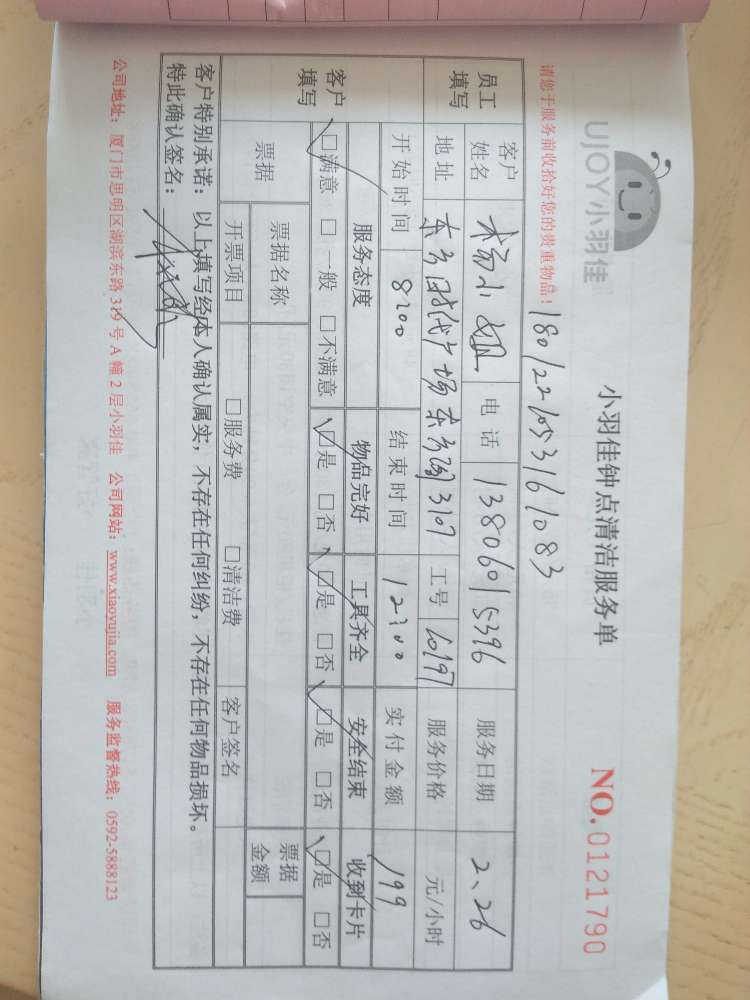 UJOY小羽佳
小羽佳钟点清洁服务单
NO.0121790
请您于服务前收拾好您的贵重物品！
1801221053161083
员工填写 客户姓名 杨小姐 电话 13806015396 服务日期 2、26
地址 东方时代广场东方阁3107 工号 6197 服务价格 元/小时
开始时间 8:00 结束时间 12:00 实付金额 199
客户填写 服务态度 物品完好 工具齐全 安全结束 收到卡片
☑满意 □一般 □不满意 ☑是 □否 ☑是 □否 ☑是 □否 ☑是 □否
票据 票据名称 票据金额
开票项目 □服务费 □清洁费 客户签名
客户特别承诺：以上填写经本人确认属实，不存在任何纠纷，不存在任何物品损坏。
特此确认签名：
公司地址：厦门市思明区湖滨东路319号A幢2层小羽佳 公司网站：www.xiaoyujia.com 服务监督热线：0592-5888123